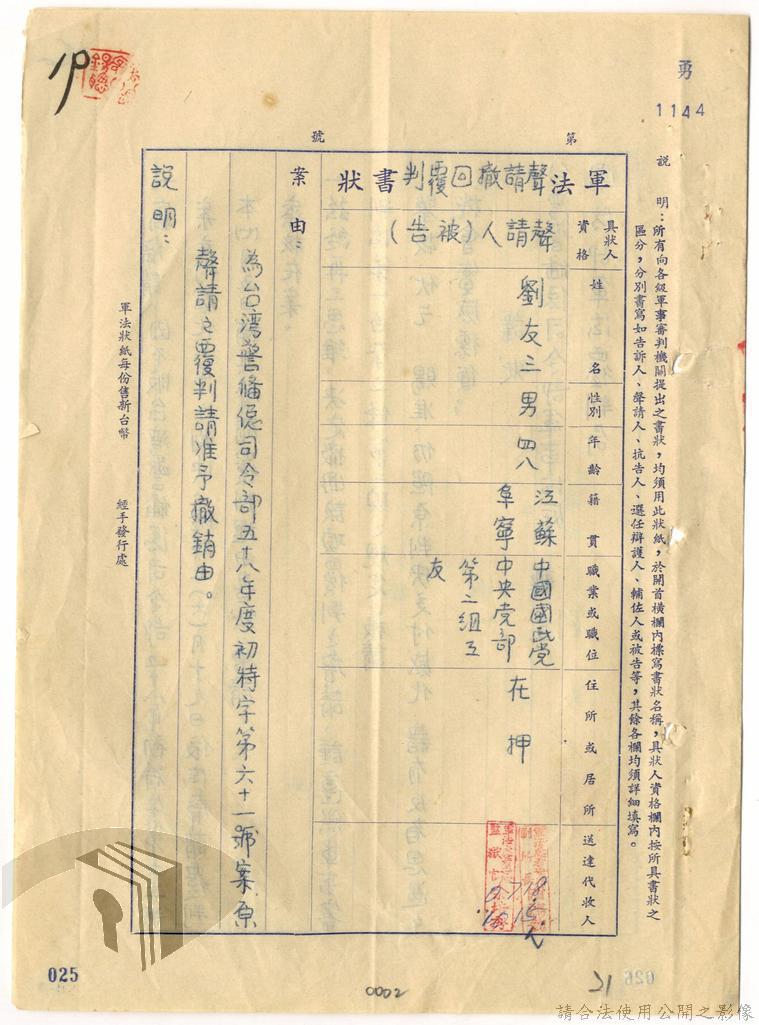 勇
1144
說 明：所有向各級軍事審判機關提出之書狀，均須用此狀紙，於開首橫欄內標寫書狀名稱，具狀人資格欄內按所具書狀之
區分，分別書寫如告訴人、聲請人、抗告人、選任辯護人、輔佐人或被告等，其餘各欄均須詳細填寫。
第 號
軍法聲請撤回覆判書狀
具狀人資格
聲請人（被告）
姓名
劉友三
性別
男
年齡
四八
籍貫
江蘇
阜寧
職業或職位
中國國民党
中央党部
第二組工
友
住所或居所
在押
送達代收人
案由：
為台湾警備總司令部五十八年度初特字第六十一號案原
聲請之覆判請准予撤銷由。
說明：
軍法狀紙每份售新台幣 經手發行處
025
0002
21
026
請合法使用公開之影像